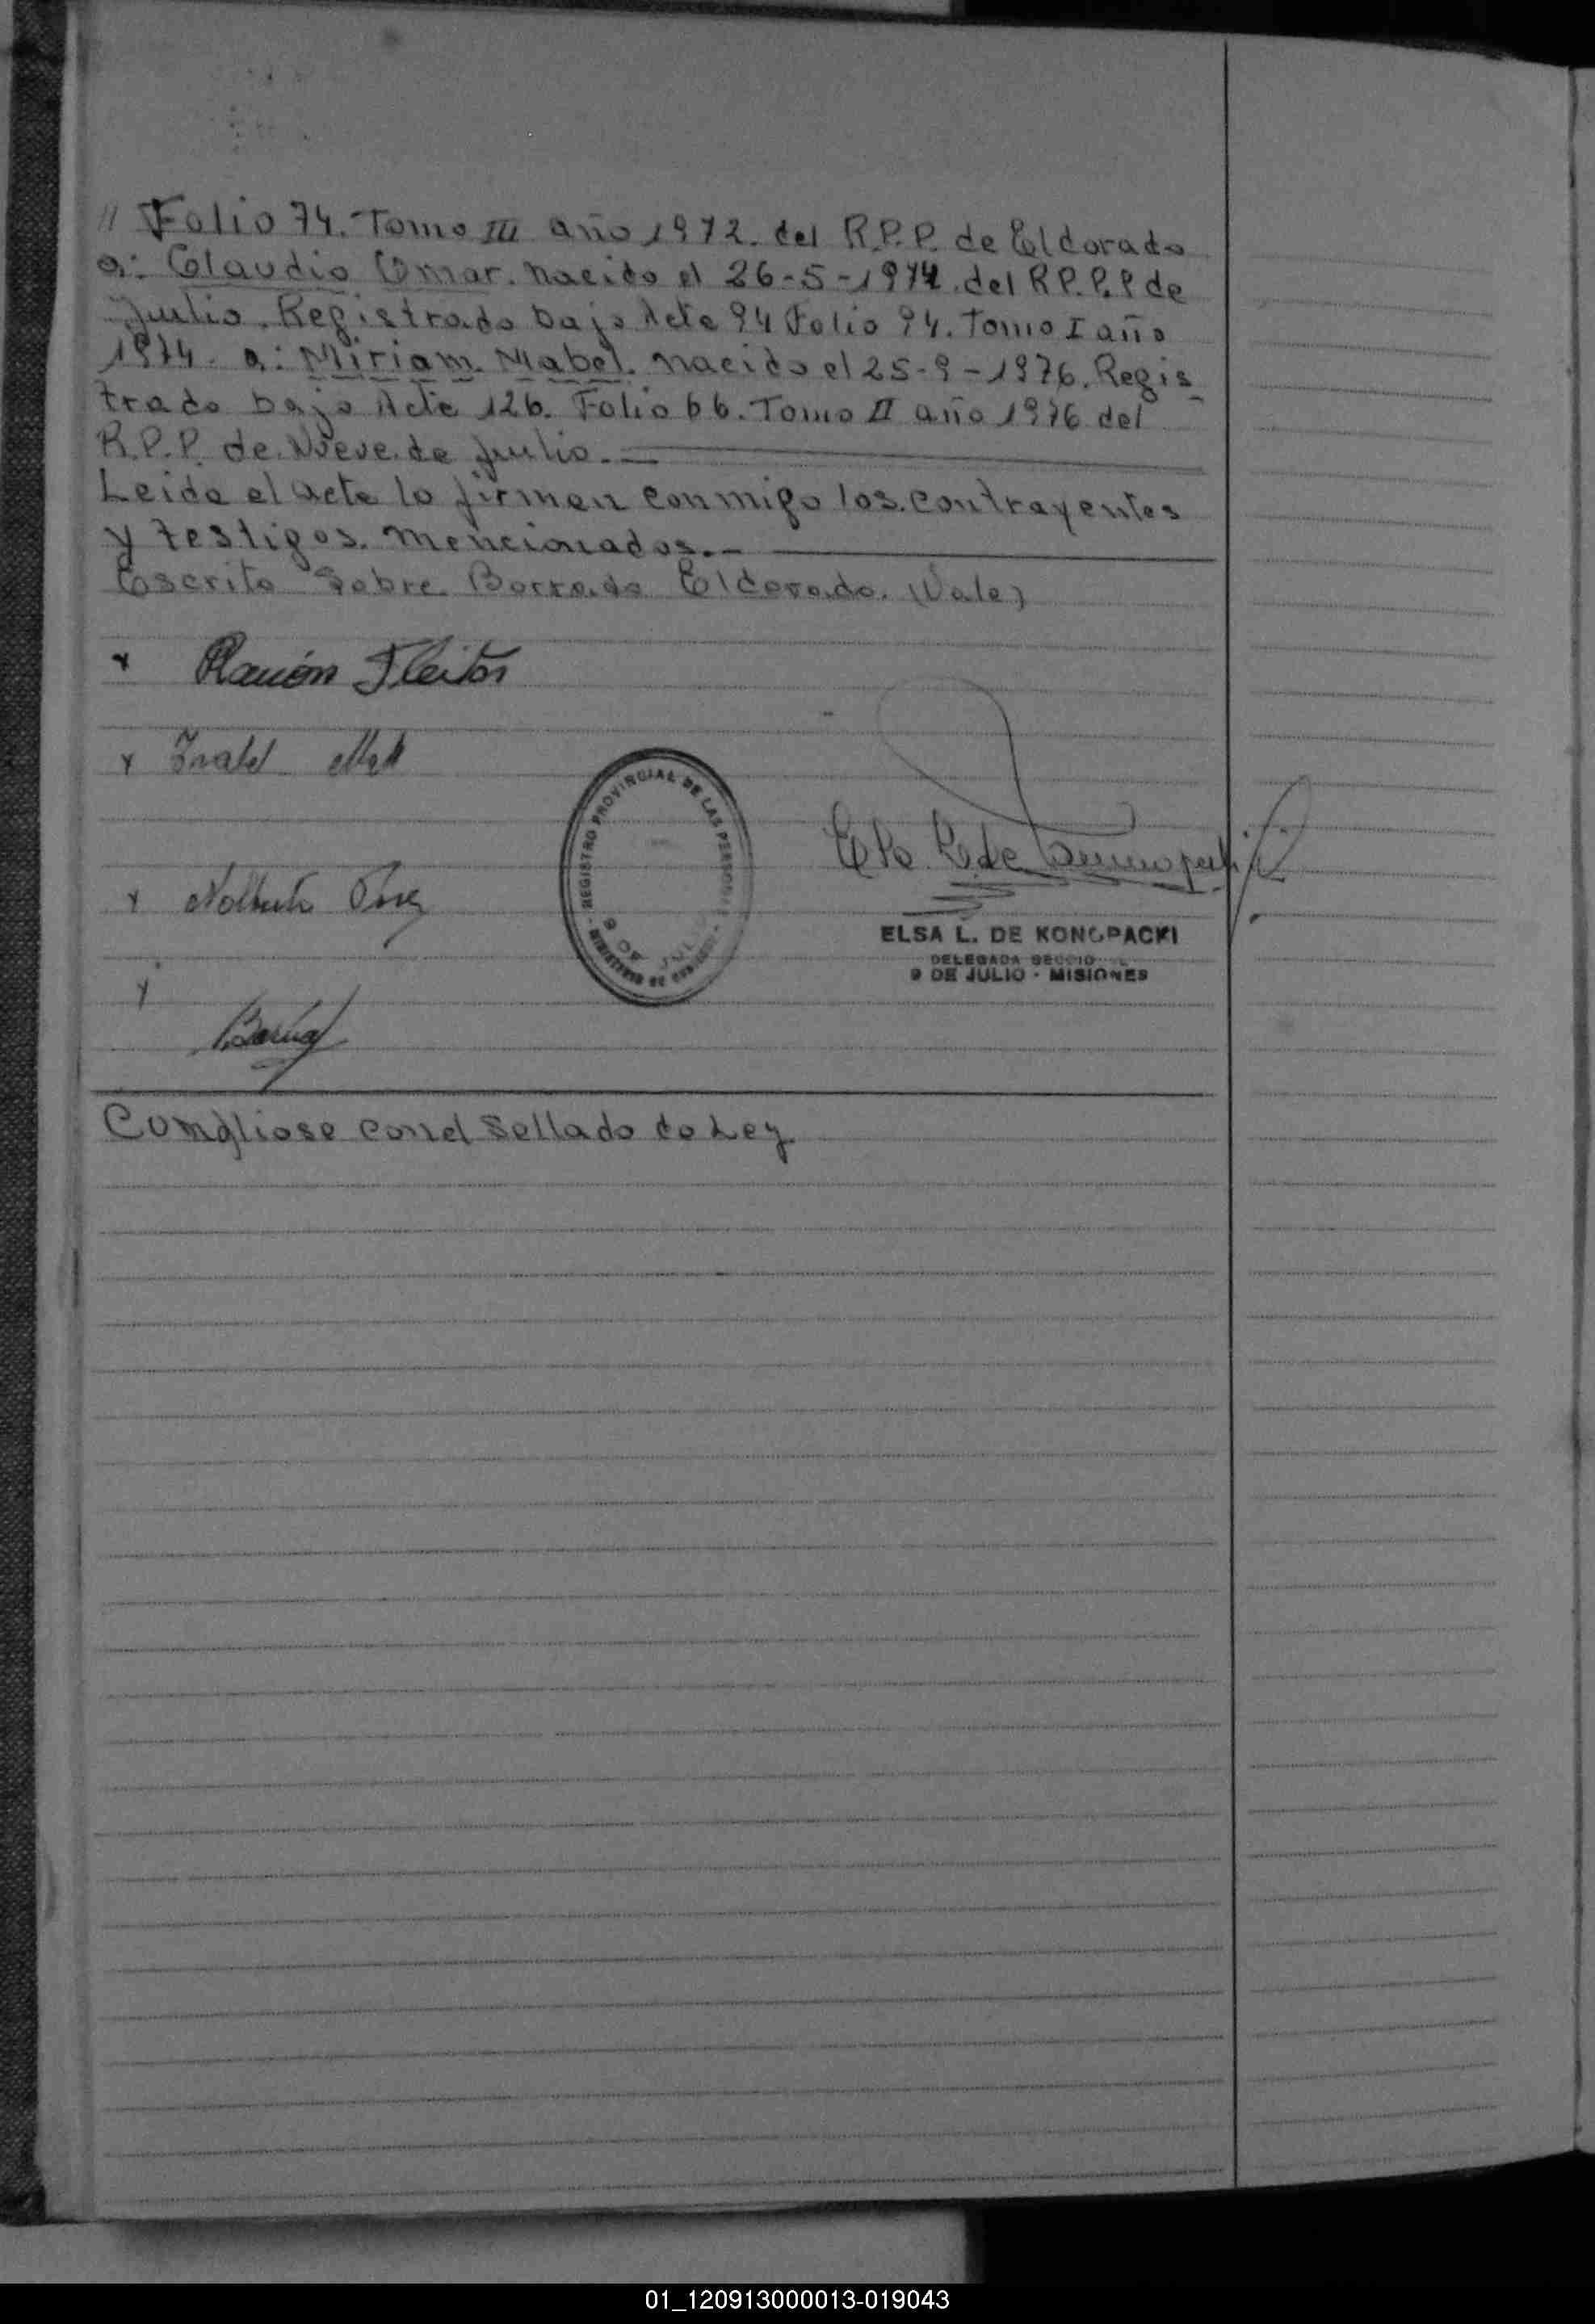 " Folio 74. Tomo III año 1972. del R.P.P. de Eldorado
a: Claudio Omar. nacido el 26-5-1974. del R.P.P. de
Julio. Registrado bajo Acta 94 Folio 94. Tomo I año
1974. a: Miriam Mabel. nacido el 25-9-1976. Regis
trado bajo Acta 126. Folio 66. Tomo II año 1976 del
R.P.P. de Nueve de Julio.
Leida el acta la firman conmigo los contrayentes
y testigos mencionados.-
Escrito Sobre Borrado Eldorado. (Vale)
x Ramón Fleitas
x
REGISTRO PROVINCIAL DE LAS PERSONAS
9 DE JULIO
x Nolberto
ELSA L. DE KONOPACKI
DELEGADA
9 DE JULIO - MISIONES
x
Compliose con el Sellado de Ley
01_120913000013-019043